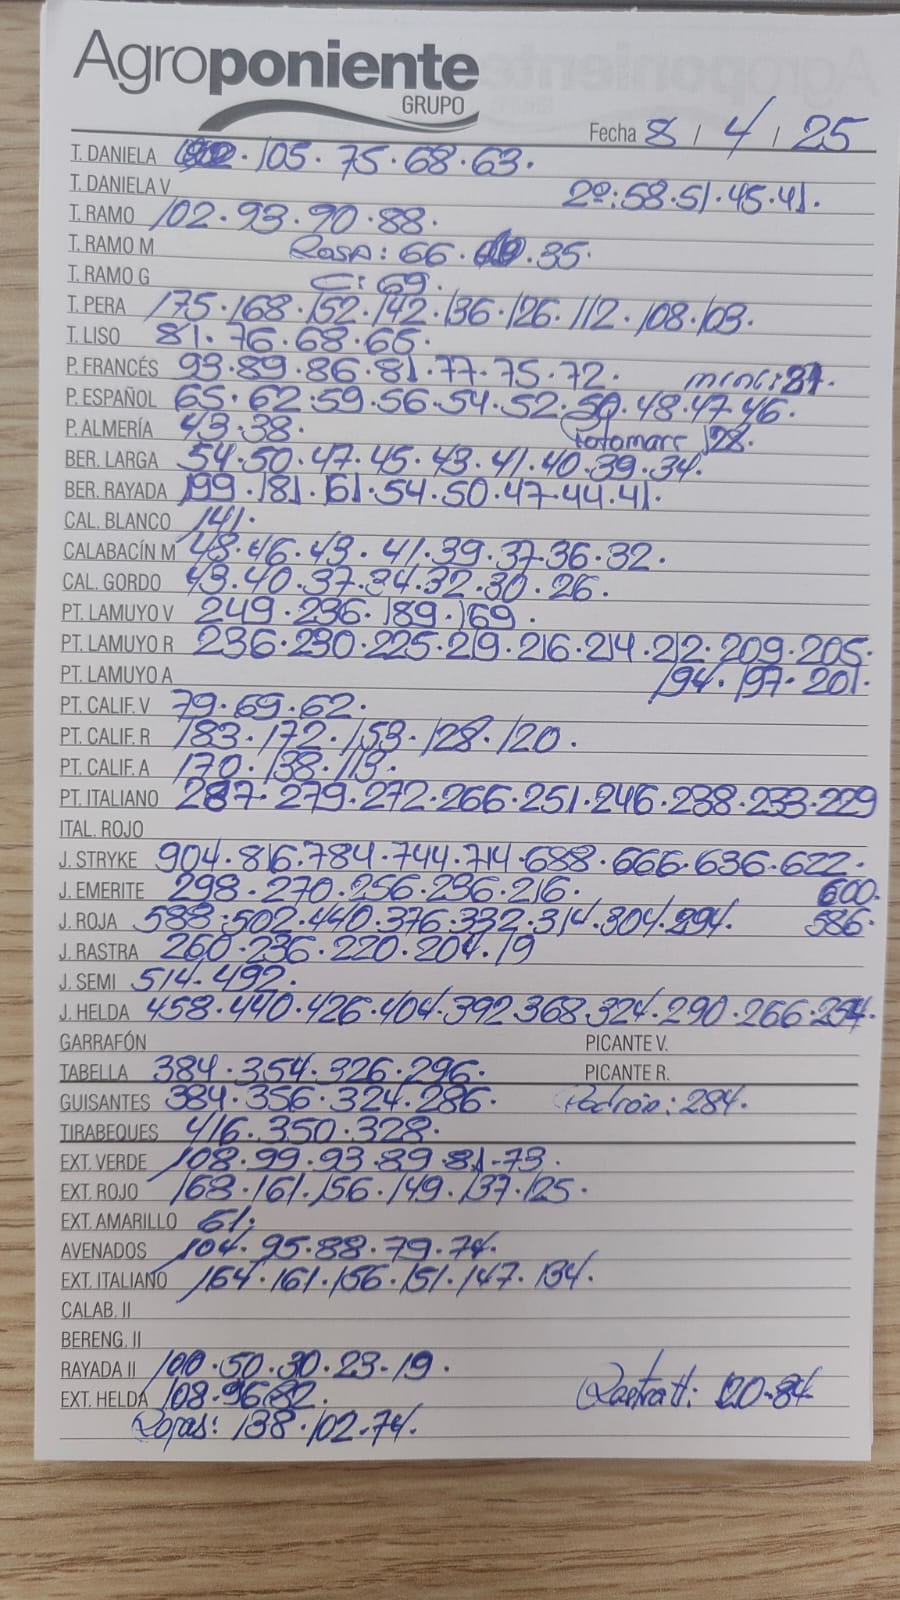 Agroponiente
GRUPO
Fecha 8 / 4 / 25
T. DANIELA 105 · 75 · 68 · 63 ·
T. DANIELA V 2º: 58 · 51 · 45 · 41 ·
T. RAMO 102 · 93 · 90 · 88 ·
T. RAMO M Rosa: 66 · 35 ·
T. RAMO G C: 69 ·
T. PERA 175 · 168 · 152 · 142 · 136 · 126 · 112 · 108 · 103 ·
T. LISO 81 · 76 · 68 · 65 ·
P. FRANCÉS 93 · 89 · 86 · 81 · 77 · 75 · 72 · mini:
P. ESPAÑOL 65 · 62 · 59 · 56 · 54 · 52 · 50 · 48 · 47 · 46 ·
P. ALMERÍA 43 · 38 · 128 ·
BER. LARGA 54 · 50 · 47 · 45 · 43 · 41 · 40 · 39 · 34 ·
BER. RAYADA 199 · 181 · 161 · 54 · 50 · 47 · 44 · 41 ·
CAL. BLANCO 141 ·
CALABACÍN M 48 · 46 · 43 · 41 · 39 · 37 · 36 · 32 ·
CAL. GORDO 43 · 40 · 37 · 34 · 32 · 30 · 26 ·
PT. LAMUYO V 249 · 236 · 189 · 169
PT. LAMUYO R 236 · 230 · 225 · 219 · 216 · 214 · 212 · 209 · 205 ·
PT. LAMUYO A 194 · 197 · 201 ·
PT. CALIF. V 79 · 69 · 62 ·
PT. CALIF. R 183 · 172 · 153 · 128 · 120 ·
PT. CALIF. A 170 · 138 · 113 ·
PT. ITALIANO 287 · 279 · 272 · 266 · 251 · 246 · 238 · 233 · 229
ITAL. ROJO
J. STRYKE 904 · 816 · 784 · 744 · 714 · 688 · 666 · 636 · 622 ·
J. EMERITE 298 · 270 · 256 · 236 · 216 · 600 ·
J. ROJA 588 · 502 · 440 · 376 · 332 · 314 · 304 · 294 · 586 ·
J. RASTRA 260 · 236 · 220 · 204 · 19
J. SEMI 514 · 492 ·
J. HELDA 458 · 440 · 426 · 404 · 392 368 · 324 · 290 · 266 ·
GARRAFÓN PICANTE V.
TABELLA 384 · 354 · 326 · 296 · PICANTE R.
GUISANTES 384 · 356 · 324 · 286 · Padrón: 284 ·
TIRABEQUES 416 · 350 · 328 ·
EXT. VERDE 108 · 99 · 93 · 89 · 81 · 73 ·
EXT. ROJO 168 · 161 · 156 · 149 · 137 · 125 ·
EXT. AMARILLO 61 ·
AVENADOS 104 · 95 · 88 · 79 · 74 ·
EXT. ITALIANO 164 · 161 · 156 · 151 · 147 · 134 ·
CALAB. II
BERENG. II
RAYADA II 100 · 50 · 30 · 23 · 19 ·
EXT. HELDA 108 · 96 · 82 · Rastra II: 120 · 84
Rojas: 138 · 102 · 74 ·